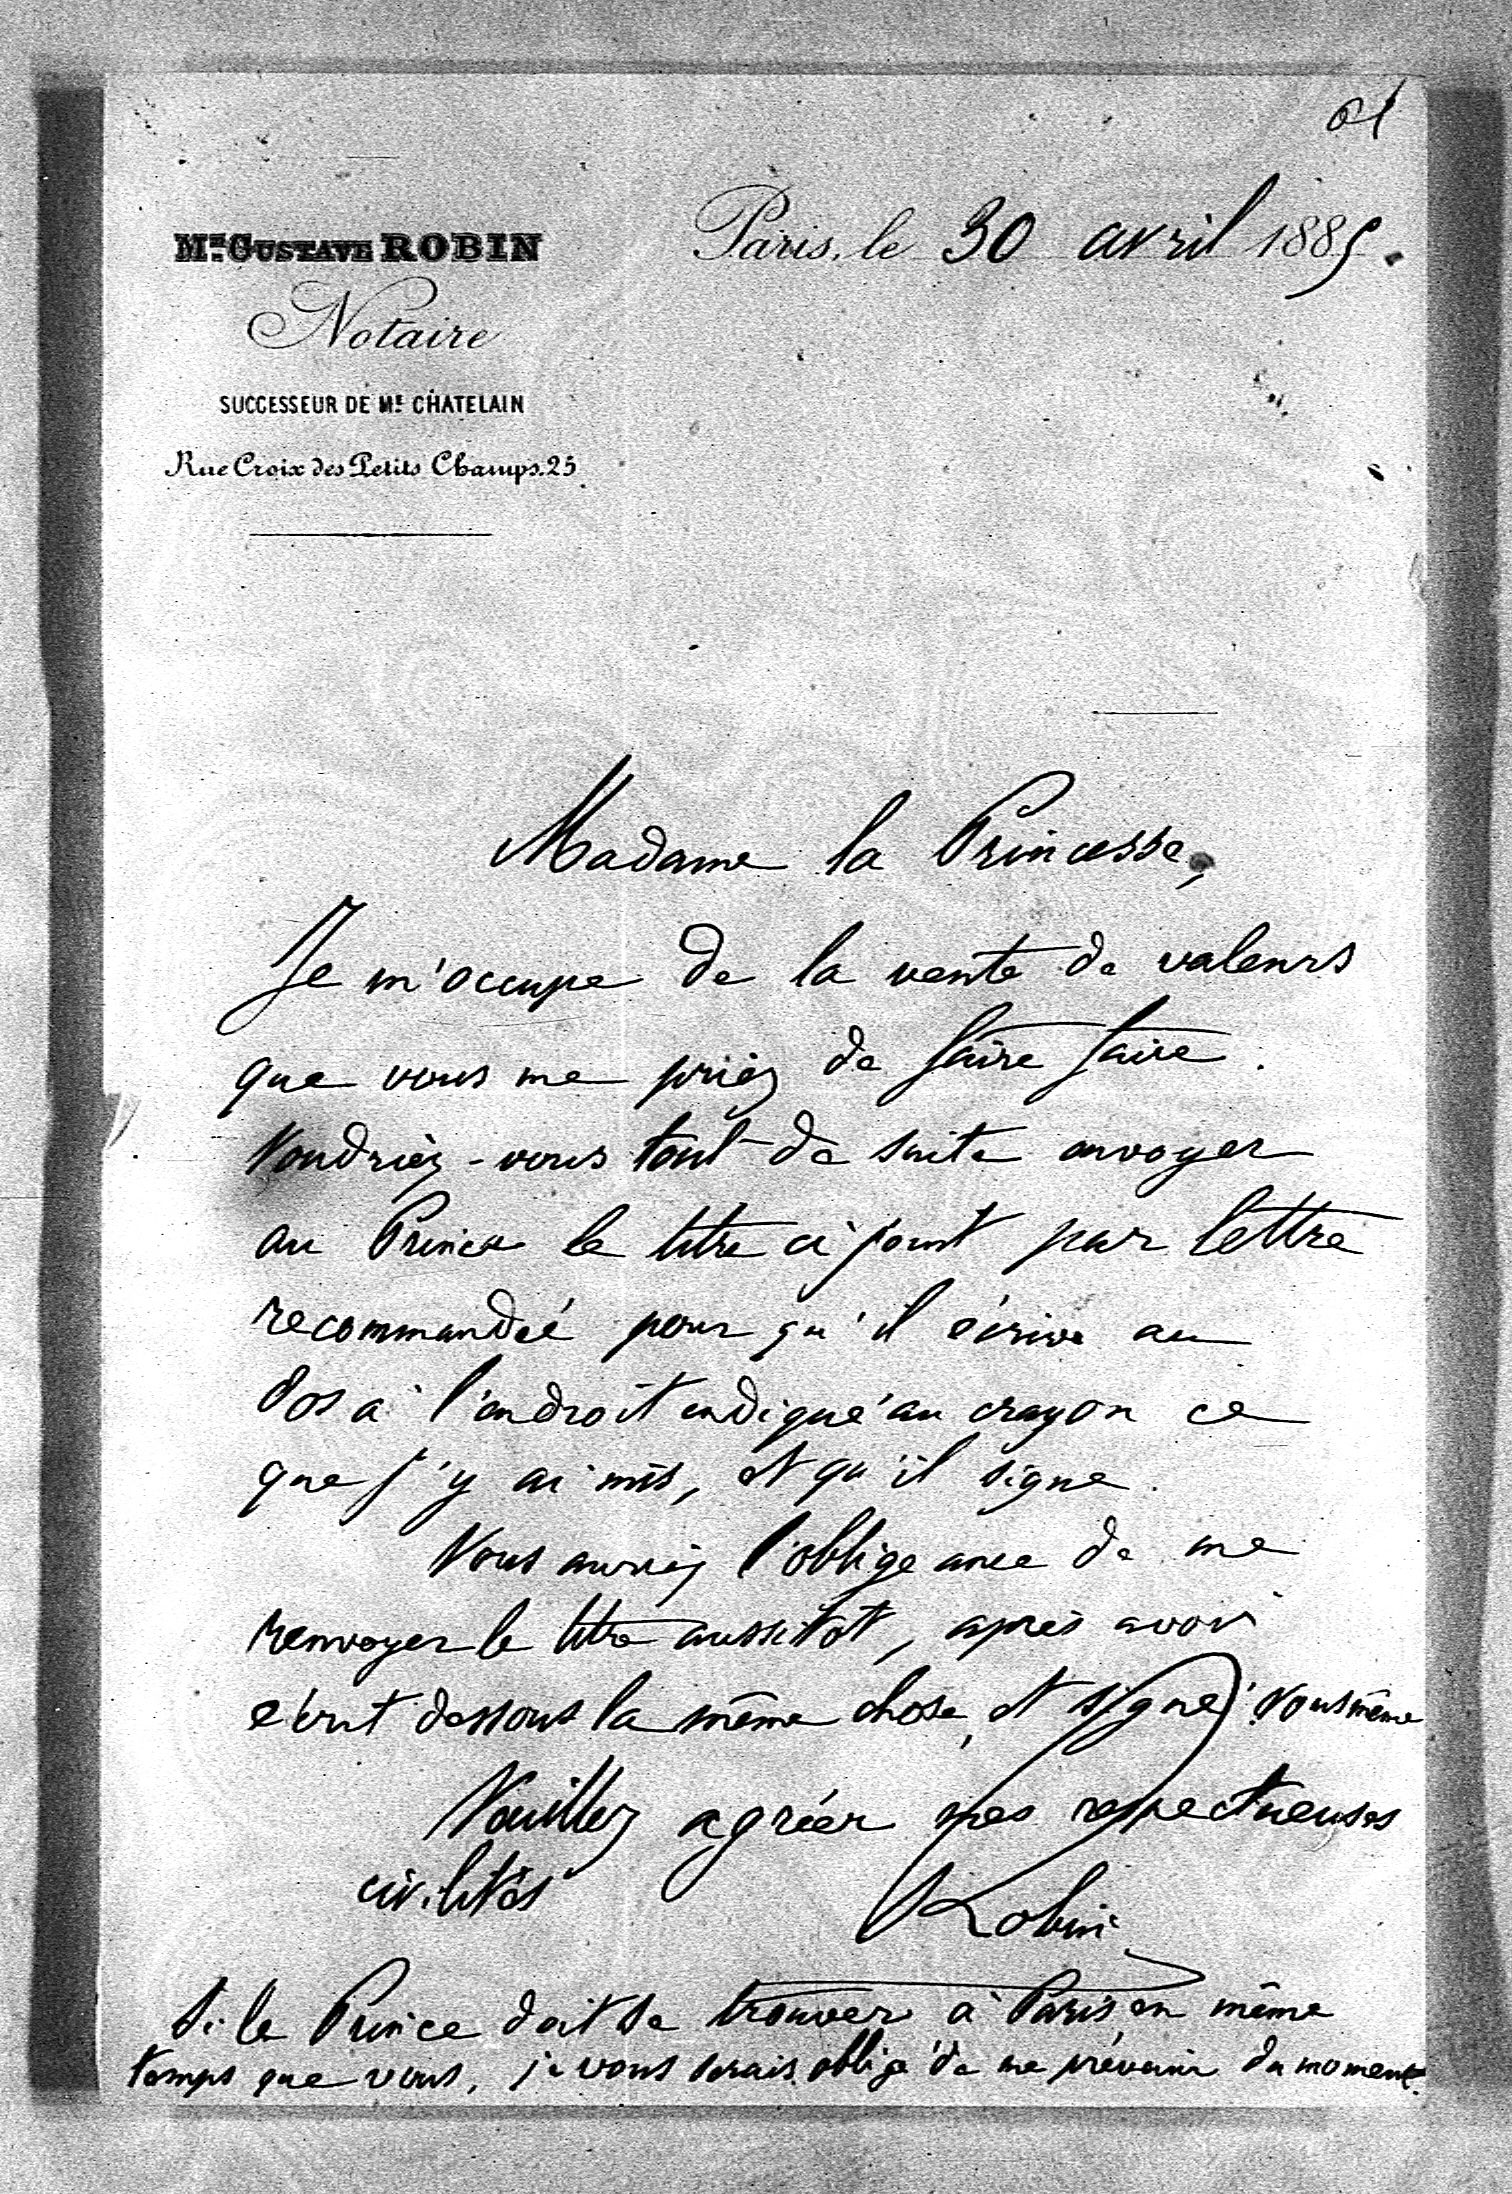 Paris, le 30 avril 1885.
Me. GUSTAVE ROBIN
Notaire
SUCCESSEUR DE Me. CHATELAIN
Rue Croix des Petits Champs. 25
Madame la Princesse,
Je m'occupe de la vente de valeurs
que vous me priez de faire faire.
Voudriez-vous tout de suite envoyer
au Prince le titre ci joint par lettre
recommandée pour qu'il écrive au
dos à l'endroit indiqué au crayon ce
que j'y ai mis, et qu'il signe.
Vous auriez l'obligeance de me
renvoyer le titre aussitôt, après avoir
écrit dessous la même chose, et signé vous même
Veuillez agréer mes respectueuses
civilités
Robin
Si le Prince doit se trouver à Paris en même
temps que vous, je vous serais obligé de me prévenir du moment.